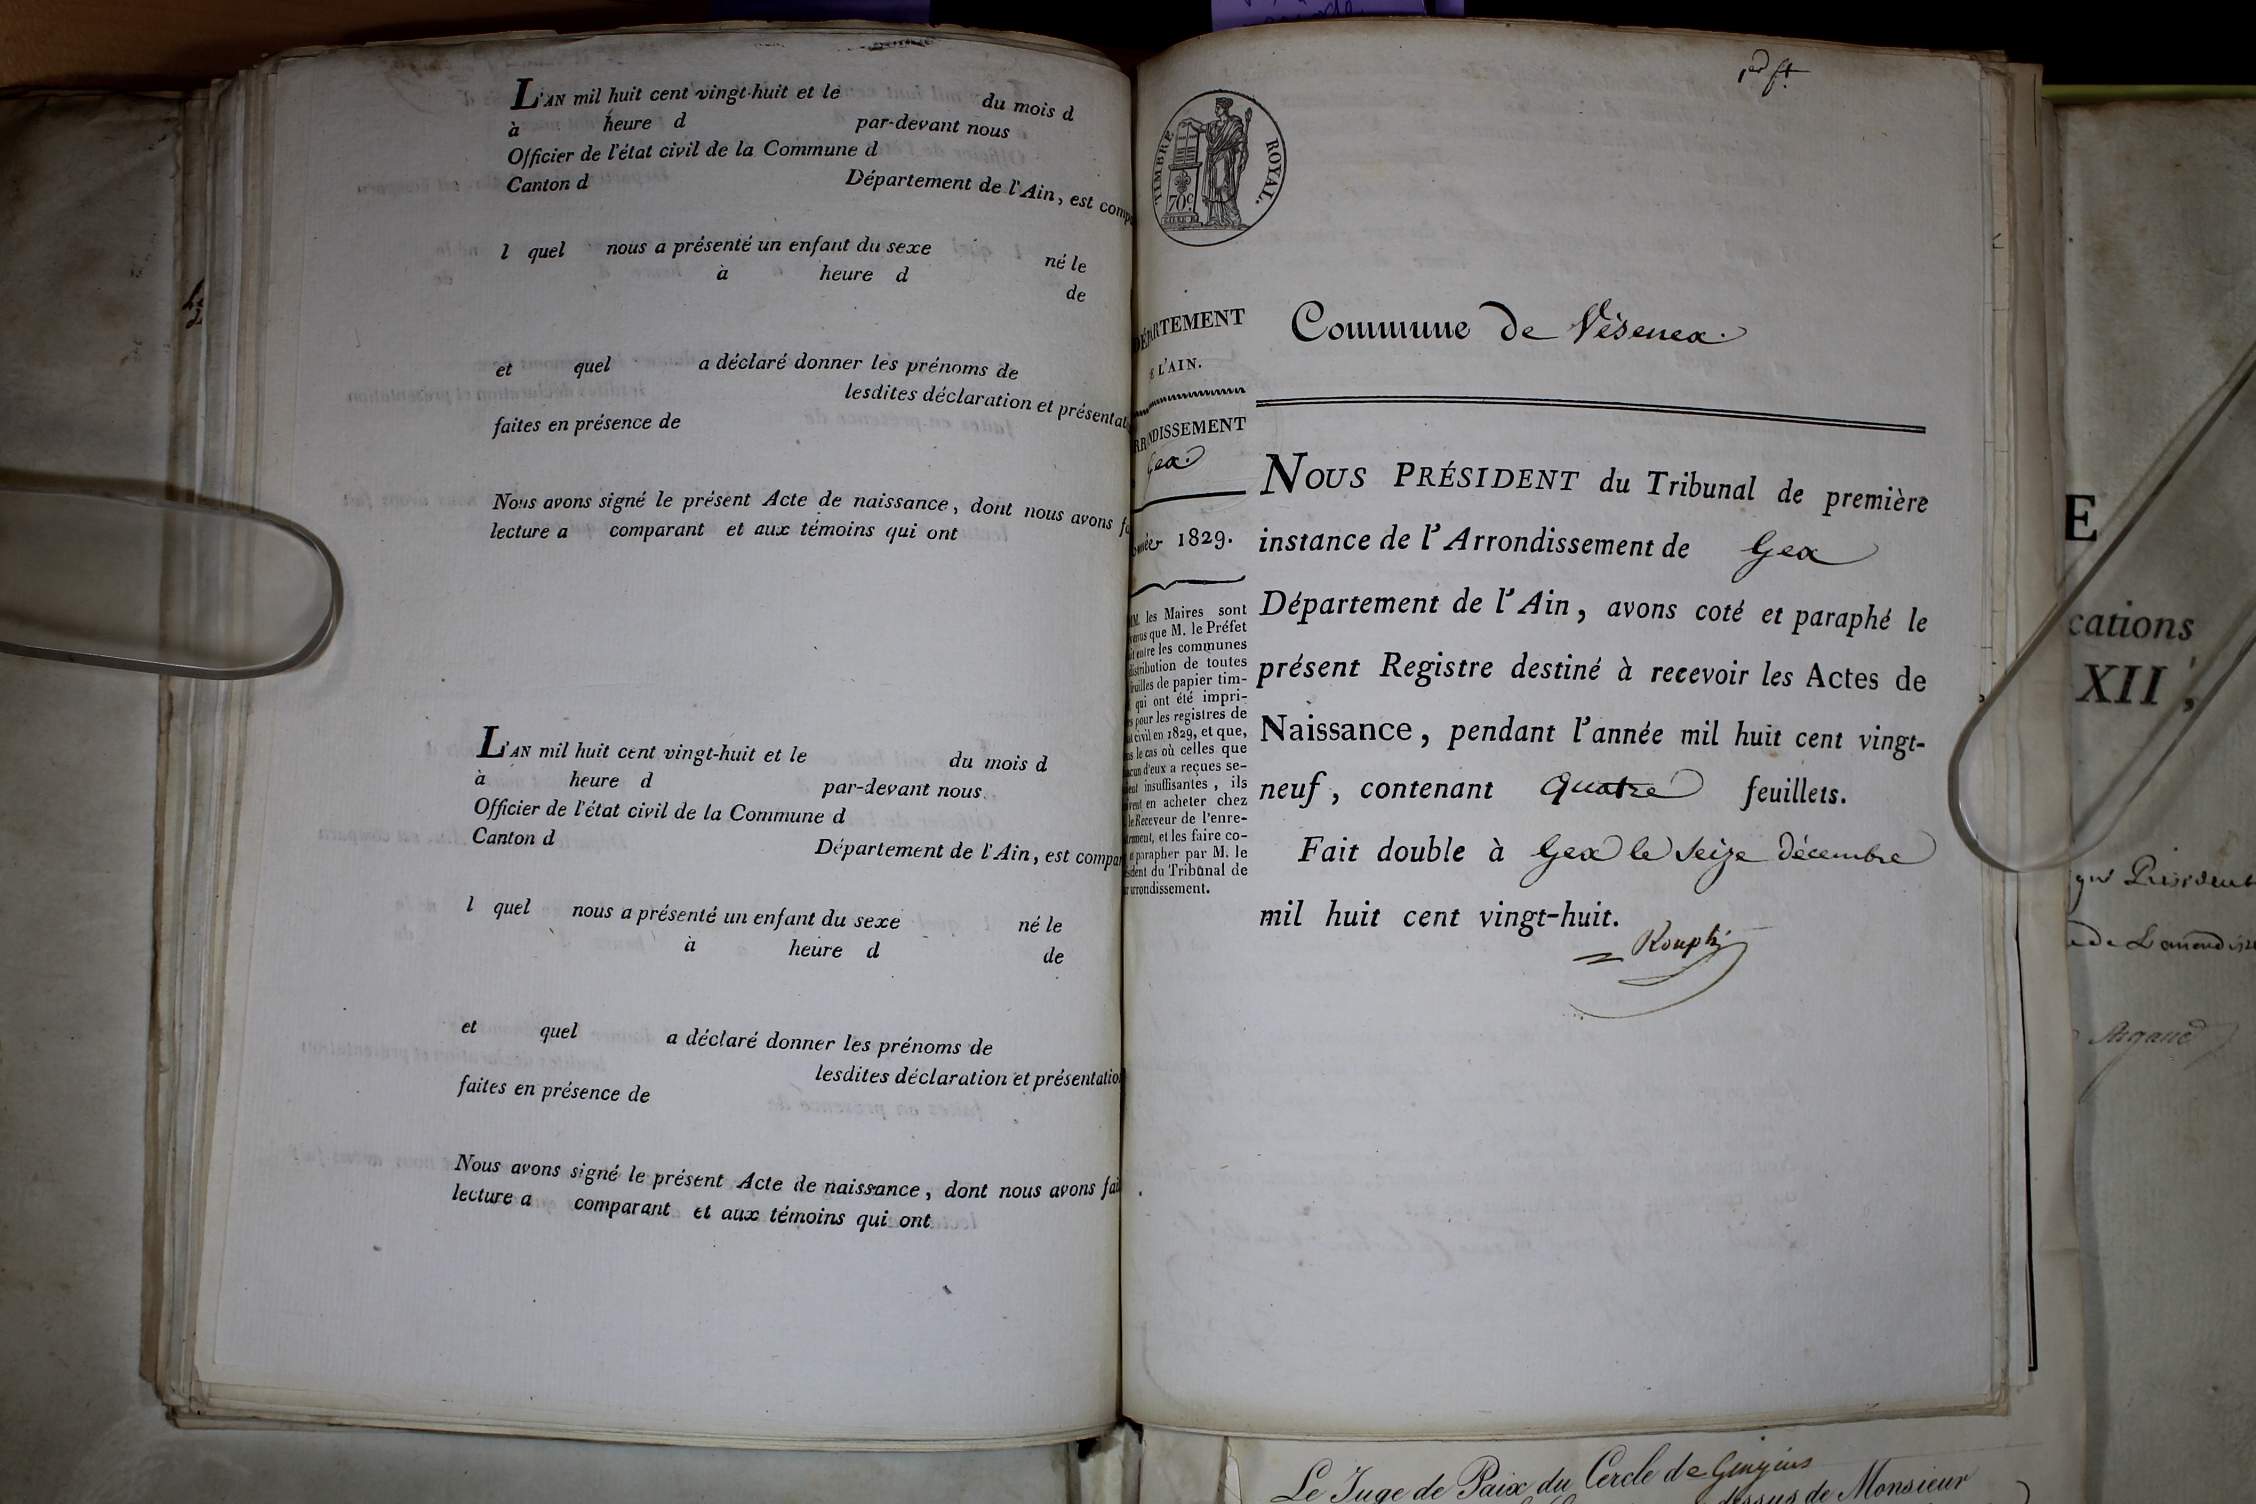 L'AN mil huit cent vingt-huit et le du mois d
à heure d par-devant nous
Officier de l'état civil de la Commune d
Canton d Département de l'Ain, est comp
l quel nous a présenté un enfant du sexe né le
à heure d de
et quel a déclaré donner les prénoms de
lesdites déclaration et présentat
faites en présence de
Nous avons signé le présent Acte de naissance, dont nous avons f
lecture a comparant et aux témoins qui ont
L'AN mil huit cent vingt-huit et le du mois d
à heure d par-devant nous
Officier de l'état civil de la Commune d
Canton d Département de l'Ain, est compar
l quel nous a présenté un enfant du sexe né le
à heure d de
et quel a déclaré donner les prénoms de
lesdites déclaration et présentation
faites en présence de
Nous avons signé le présent Acte de naissance, dont nous avons fai
lecture a comparant et aux témoins qui ont
1er ft.
TIMBRE ROYAL.
70c.
DÉPARTEMENT
E L'AIN.
RRONDISSEMENT
Gex.
année 1829.
MM. les Maires sont
venus que M. le Préfet
it entre les communes
distribution de toutes
feuilles de papier tim-
qui ont été impri-
s pour les registres de
at civil en 1829, et que,
ns le cas où celles que
acun d'eux a reçues se-
ient insuffisantes, ils
vent en acheter chez
le Receveur de l'enre-
trement, et les faire co-
r et parapher par M. le
ésident du Tribunal de
ur arrondissement.
Commune de Vésenex.
NOUS PRÉSIDENT du Tribunal de première
instance de l'Arrondissement de Gex
Département de l'Ain, avons coté et paraphé le
présent Registre destiné à recevoir les Actes de
Naissance, pendant l'année mil huit cent vingt-
neuf, contenant quatre feuillets.
Fait double à Gex le seize décembre
mil huit cent vingt-huit.
E
cations
XII,
Président
Argand
Le Juge de Paix du Cercle de Gingins
dessus de Monsieur